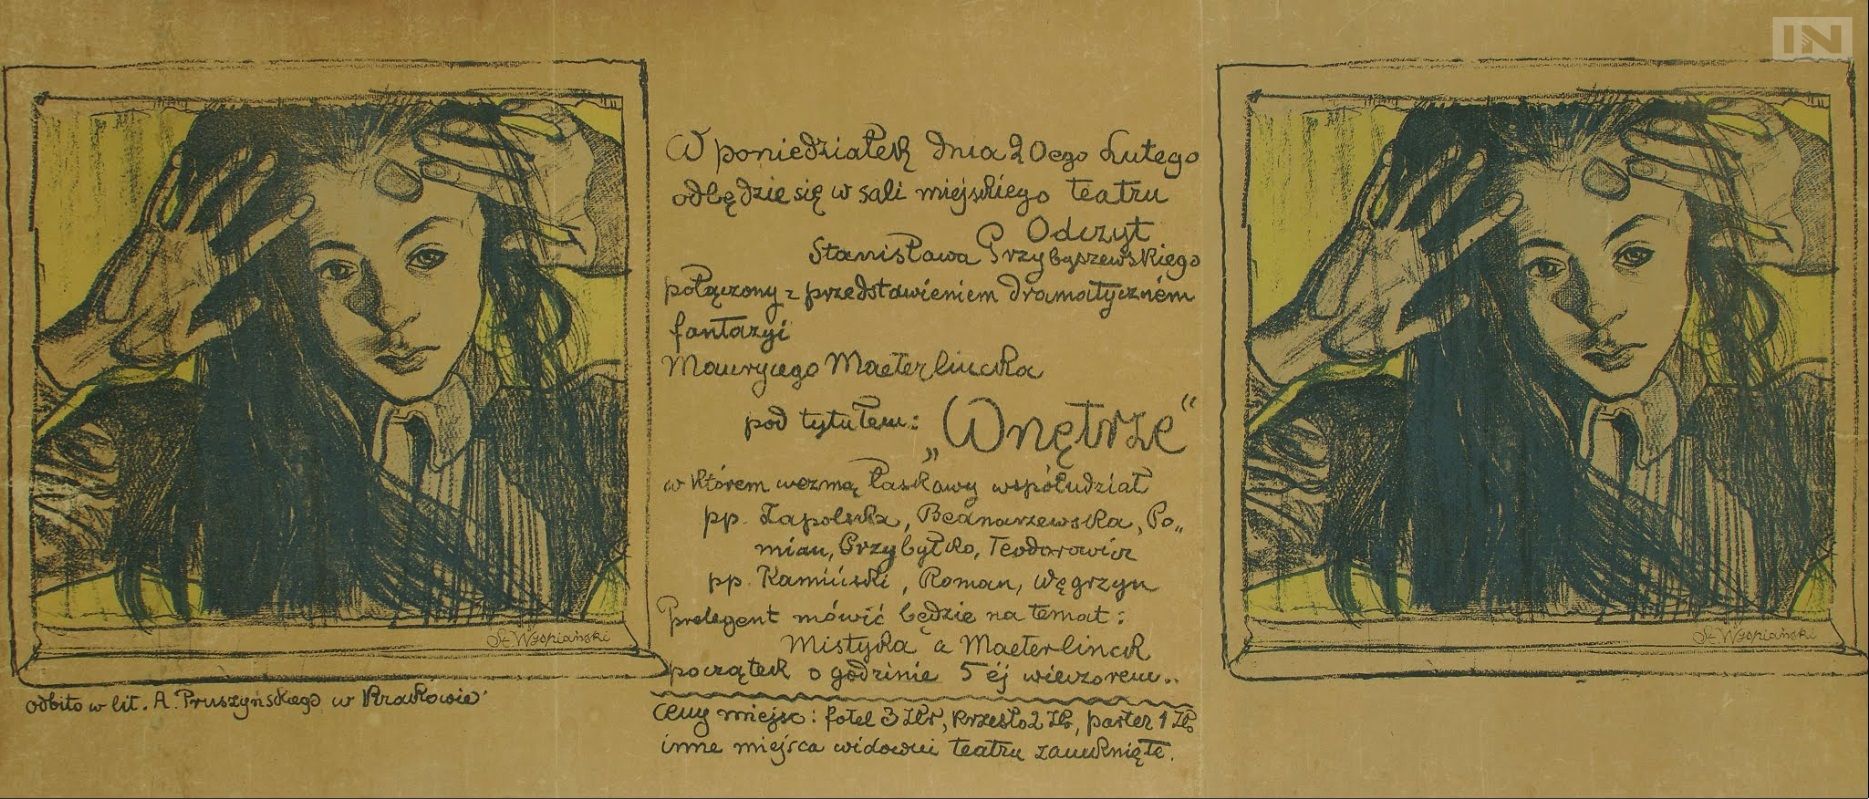 IN
W poniedziałek dnia 20ego Lutego
odbędzie się w sali miejskiego teatru
Odczyt
Stanisława Przybyszewskiego
połączony z przedstawieniem dramatyczném
fantazyi
Maurycego Maeterlincka
pod tytułem: „Wnętrze“
w którem wezmą łaskawy współudział
pp. Zapolska, Bednarzewska, Po„
mian, Przybyłko, Teodorowicz
pp. Kamiński, Roman, Węgrzyn
Prelegent mówić będzie na temat:
Mistyka a Maeterlinck
początek o godzinie 5éj wieczorem..
Ceny miejsc: fotel 3 Złr, Krzesło 2 Zł, parter 1 Zł,
inne miejsca widowni teatru zamknięte.
St. Wyspiański
odbito w lit. A. Pruszyńskiego w Krakowie
St. Wyspiański